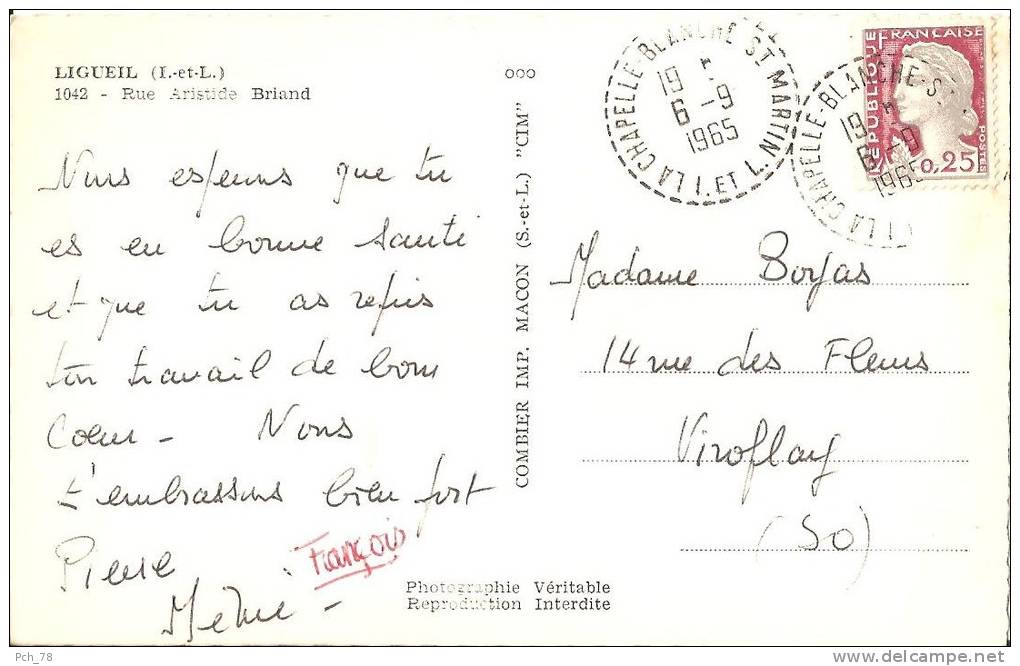 LIGUEIL (I.-et-L.)
1042 - Rue Aristide Briand
Nous espérons que tu
es en bonne santé
et que tu as repris
ton travail de bon
Coeur - Nous
t'embrassons bien fort
Pierre
François
Mémé -
ooo
COMBIER IMP. MACON (S.-et-L.) "CIM"
Photographie Véritable
Reproduction Interdite
LA CHAPELLE-BLANCHE ST MARTIN
I. ET L.
19
6 -9
1965
REPUBLIQUE FRANÇAISE
POSTES
0,25
LA CHAPELLE-BLANCHE-S
19
6 -9
1965
Madame Borjas
14 rue des Fleurs
Viroflay
(SO)
Pch_78
www.delcampe.net